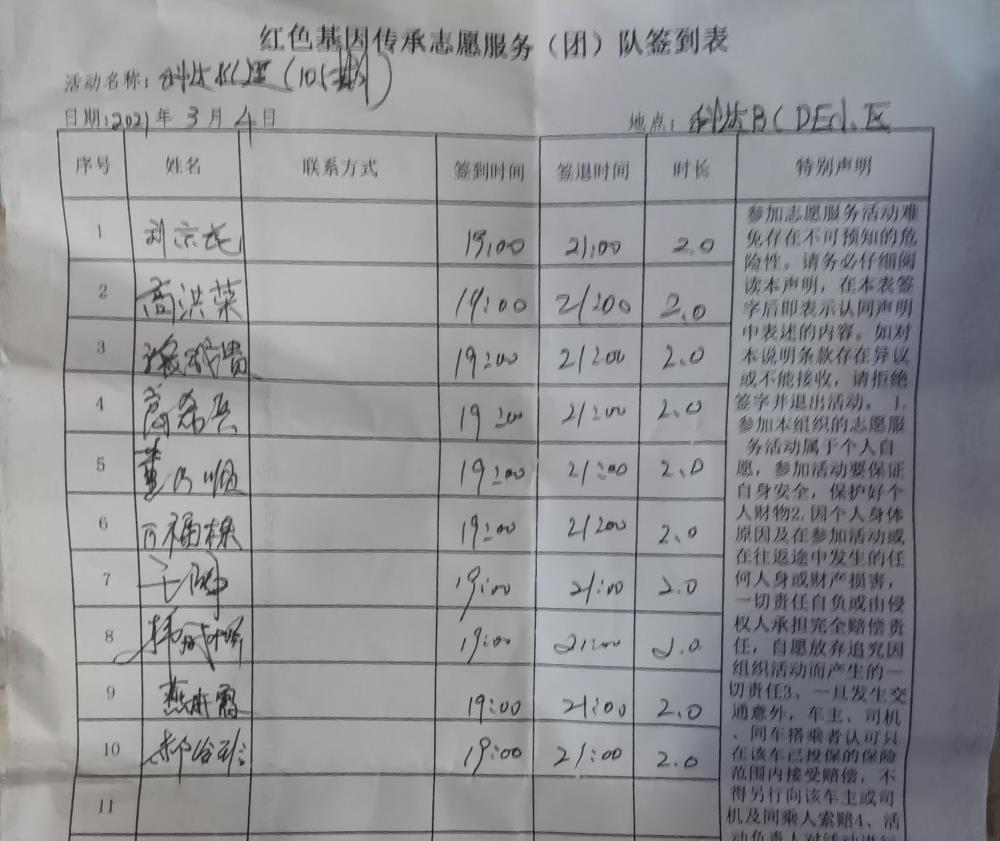 红色基因传承志愿服务（团）队签到表
活动名称：科达巡逻(10
日期：2021年 3月 4日 地点：科达B(DE)区
序号 姓名 联系方式 签到时间 签退时间 时长 特别声明
1 刘京龙 19:00 21:00 2.0
2 高洪菜 19:00 21:00 2.0
3 19:00 21:00 2.0
4 19:00 21:00 2.0
5 董乃顺 19:00 21:00 2.0
6 福栋 19:00 21:00 2.0
7 19:00 21:00 2.0
8 韩 19:00 21:00 2.0
9 燕 霞 19:00 21:00 2.0
10 郝 19:00 21:00 2.0
11
参加志愿服务活动难
免存在不可预知的危
险性。请务必仔细阅
读本声明，在本表签
字后即表示认同声明
中表述的内容。如对
本说明条款存在异议
或不能接收，请拒绝
签字并退出活动。 1.
参加本组织的志愿服
务活动属于个人自
愿，参加活动要保证
自身安全，保护好个
人财物2.因个人身体
原因及在参加活动或
在往返途中发生的任
何人身或财产损害，
一切责任自负或由侵
权人承担完全赔偿责
任，自愿放弃追究因
组织活动而产生的一
切责任3、一旦发生交
通意外，车主、司机
、同车搭乘者认可只
在该车已投保的保险
范围内接受赔偿，不
得另行向该车主或司
机及同乘人索赔4、活
动负责人对活动进行